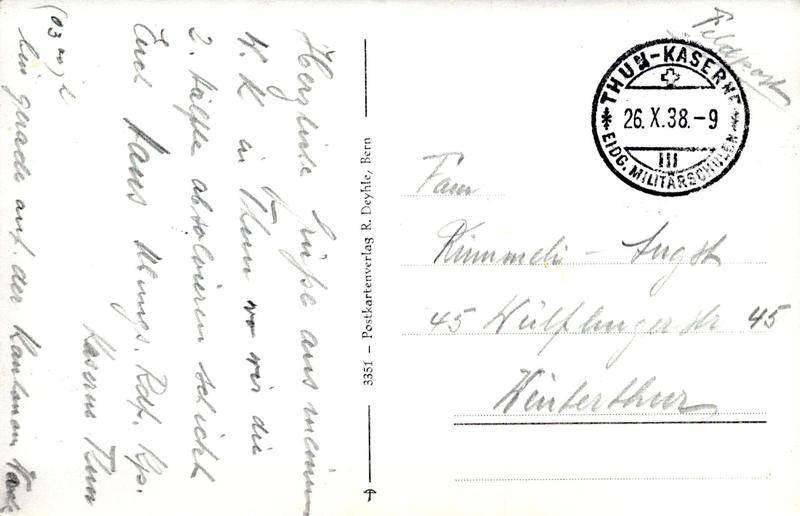 Herzliche Grüße aus meinem
W.K. in Thun wo wir die
2. Hälfte absolvieren schickt
Euch Hans Übungs. Rdf. Kp.
Kaserne Thun
bin gerade auf der Kantonnm
3351 – Postkartenverlag R. Deyhle, Bern
Feldpost
THUN-KASERNE
26.X.38.-9
III
EIDG. MILITÄRSCHULEN
Fam
Rümmeli - Angst
45 Wülflingerstr 45
Winterthur